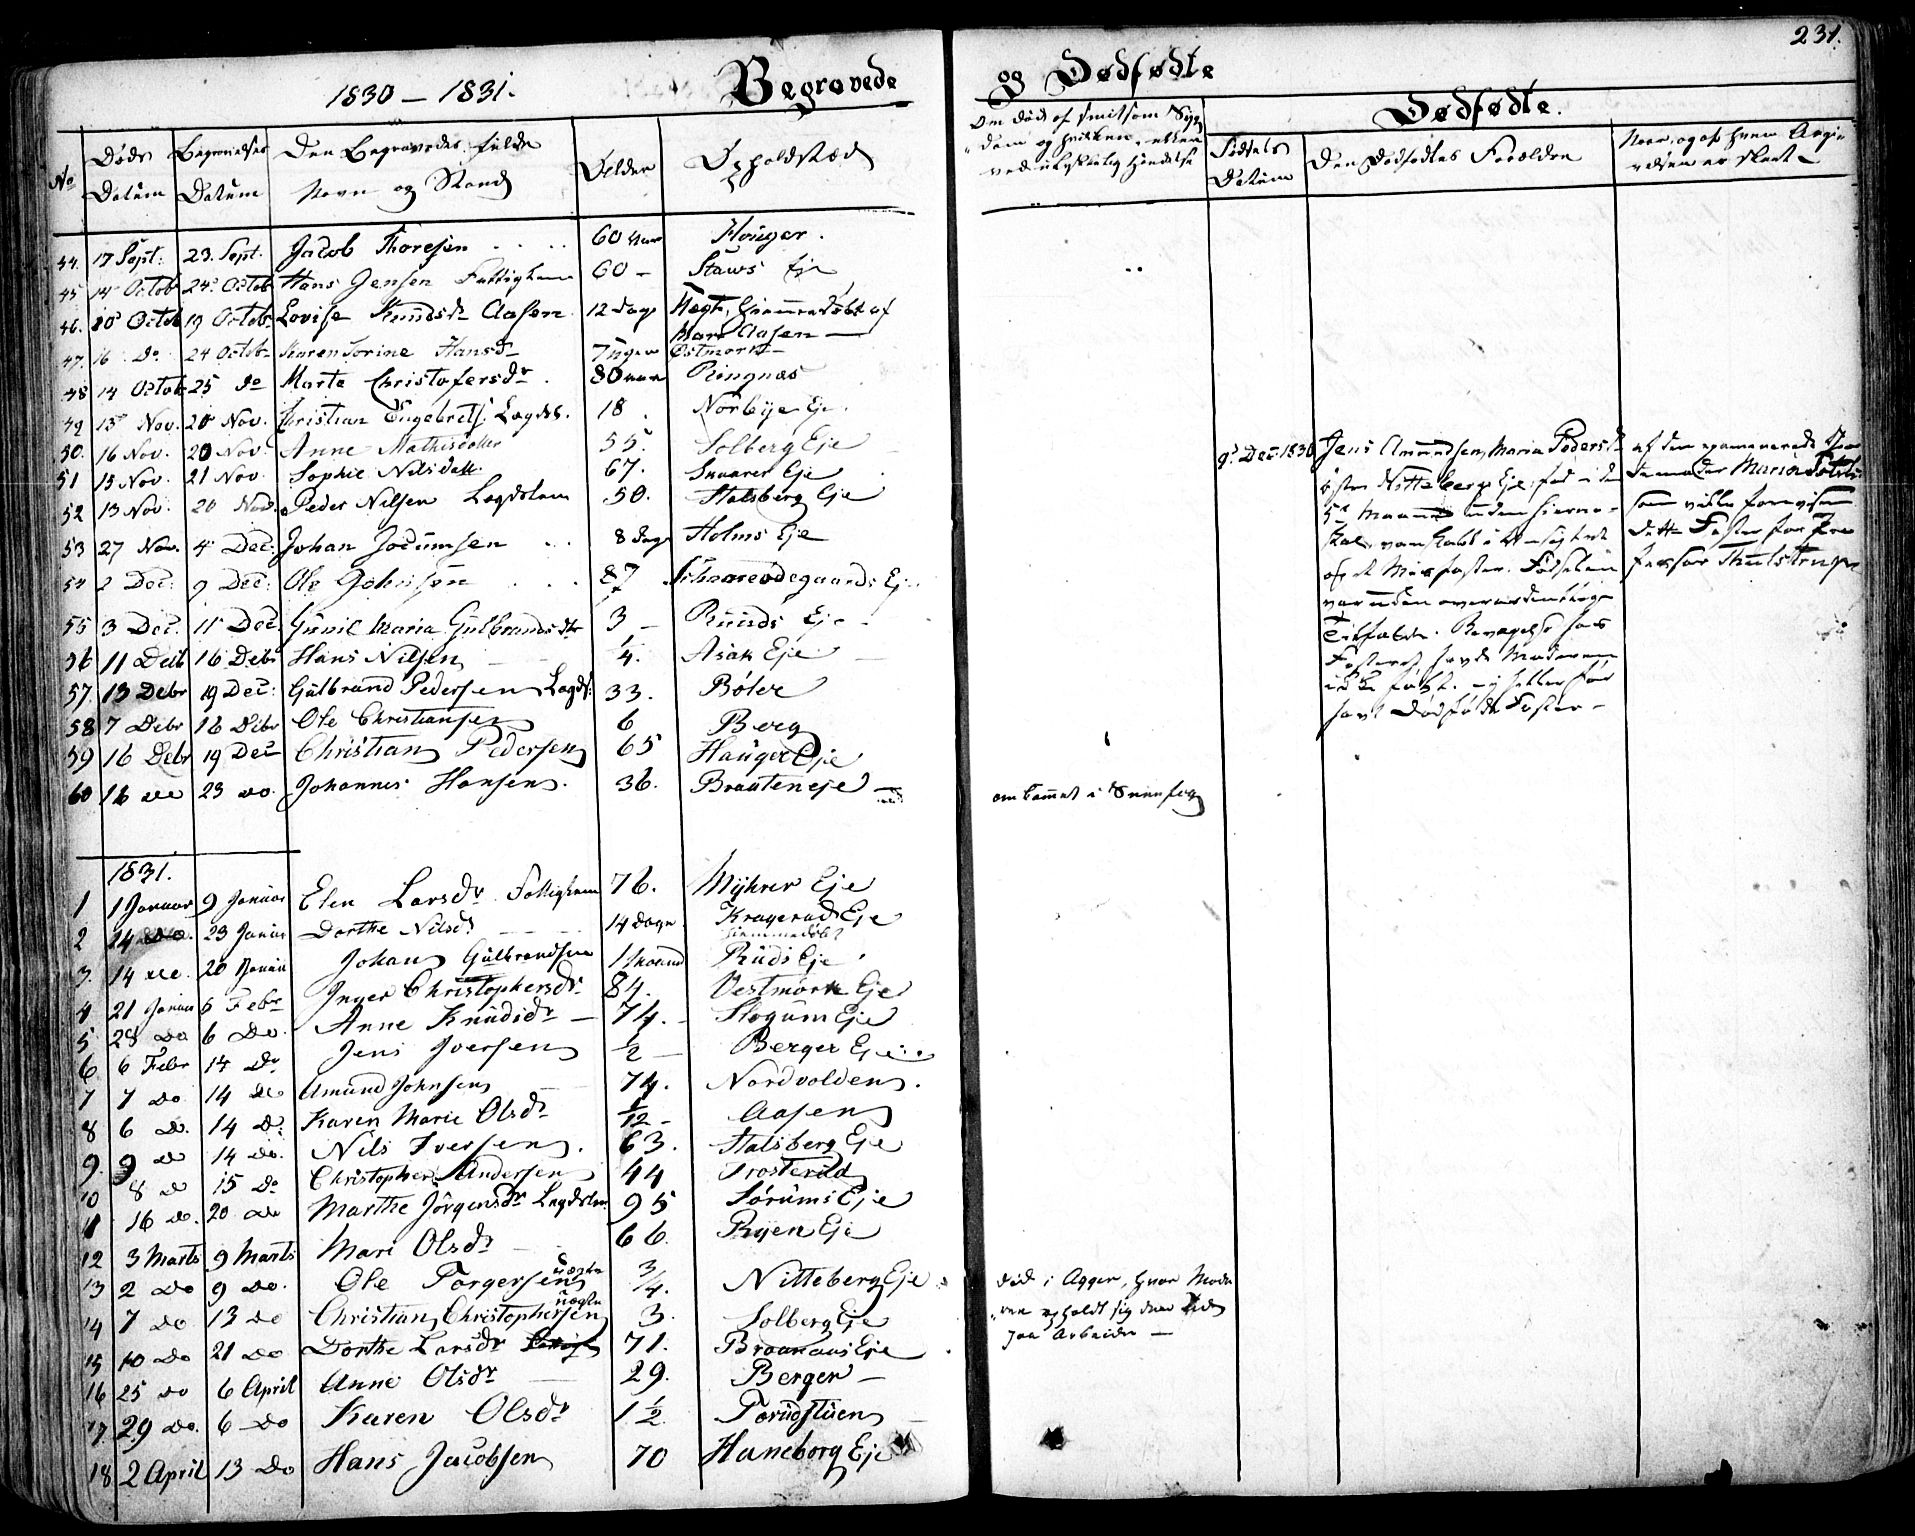 231.
1830 – 1831. Begravede og Dødfødte
Dødfødte.
No Døds Datum Begravelses Datum Den Begravedes fulde Navn og Stand Alder Opholdsted
Om død af smitsom Syg-
dom og hvilken, eller
ved ulykkelig Hændelse
Fødsels Datum Den Dødfødtes Forældre
Naar, og af hvem Angi-
velsen er skeet
44. 17 Sept: 23. Sept. Jacob Thoresen 60 Aar Houger.
45 14 Octob 24 Octob Hans Jensen Fattiglem 60 – Staws Eje
46. 10 Octob 19 Octob. Lovise Knudsdr Aasen 12 Dage Uegte, hjemmedøbt af
Mari Aasen
47. 16 Do 24 Octob. Karen Sorine Hansdr 7 Uger Østmork
48 14 Octob 25 do Marte Christofersdr. 80 Ringnæs
49 15 Nov. 20 Nov. Christian Engebrets. Lægds. 18 Norbye Eje.
50. 16 Nov. 20 Nov. Anne Mathisdatter 55 Solberg Eje
51 15 Nov. 21 Nov. Sophie Nilsdatt. 67. Snarer Eje
52 13 Nov. 20 Nov. Peder Nilsen Lægdslem 50. Stalsberg Eje
53 27 Nov. 4 Dec: Johan Jocumsen 8 Dage Holms Eje
54 2 Dec: 9 Dec: Ole Johnsen 87 Ødegaards Eje
55 3 Dec. 11 Dec. Gunil Maria Gulbrandsdtr 3 – Ruuds Eje
56 11 Decb 16 Debr Hans Nilsen ¼. Asak Eje
57. 13 Debr 19 Dec: Gulbrand Pedersen Lægds: 33. Böler
58 7 Debr 16 Debr Ole Christiansen 6 Berg
59 16 Debr 19 Dec Christian Pedersen 65 Hauger Eje
60 16 do 23 do. Johannes Hansen. 36. Braateneje
omkommet i Sneefog
9d Dec. 1830 Jens Amundsen, Maria Pedersd.
Nitteberg Eje, fød i den
5te Maaned uden Hierne-
var uden overordentlige
Tilfælde. Bevægelse hos
Fosteret, havde Moderen
ikke følt. – i heller før
havt Dødfødte Foster –
af den examinerede Jor
som vilde forevise
dette Foster for Pro
fessor Thulstrup
1831.
1 1 Januar 9 Januar Elen Larsdr. Fattiglem 76. Myhrer Eje
2 14 Do. 23 Januar Dorthe Nilsd. 14 Dage Kragerud Eje
hjemmedøbt
3. 14 do. 20 Januar Johan Gulbrandsen 1 Maaned Ruds Eje
4 21 Januar 6 Febr Inger Christophersdr. 84. Vestmork Eje
5 28 Do 6 Do. Anne Knudsdr – 74. Slogum Eje
6 6 Febr 14 Do Jens Iversen ½ Berger Eje
7 7 Do 14 Do Amund Johnsen 74. Nordvolden.
8 6 Do. 14 Do: Karen Marie Olsdr 1/12 – Aasen
9. 9 Do 14 Do. Nils Iversen. 63. Stalsberg Eje
10 8 Do 15 Do Christopher Andersen 44 Trosterud
11 16 Do. 20 Do Marthe Jörgensdr Lægdslem 95 Sörums Eje
12 3 Marts 9 Marts Mari Olsdr 66. Ryen Eje
13 2 Do 9 Do. Ole Torgersen uægte ¾. Nitteberg Eje
død i Agger, hvor Mode-
ren opholdt sig
paa Arbeide –
14 7 Do 13 Do Christian Christophersen uægte 3. Solberg Eje
15 10 Do 21 Do Dorthe Larsdr 71. Braanaas Eje
16 25 Do 6 April Anne Olsdr 29. Berger –
17. 29 Do. 6 Do Karen Olsdr 1½ Torudstuen
18 2 April 13 Do Hans Jacobsen 70 Haneborg Eje